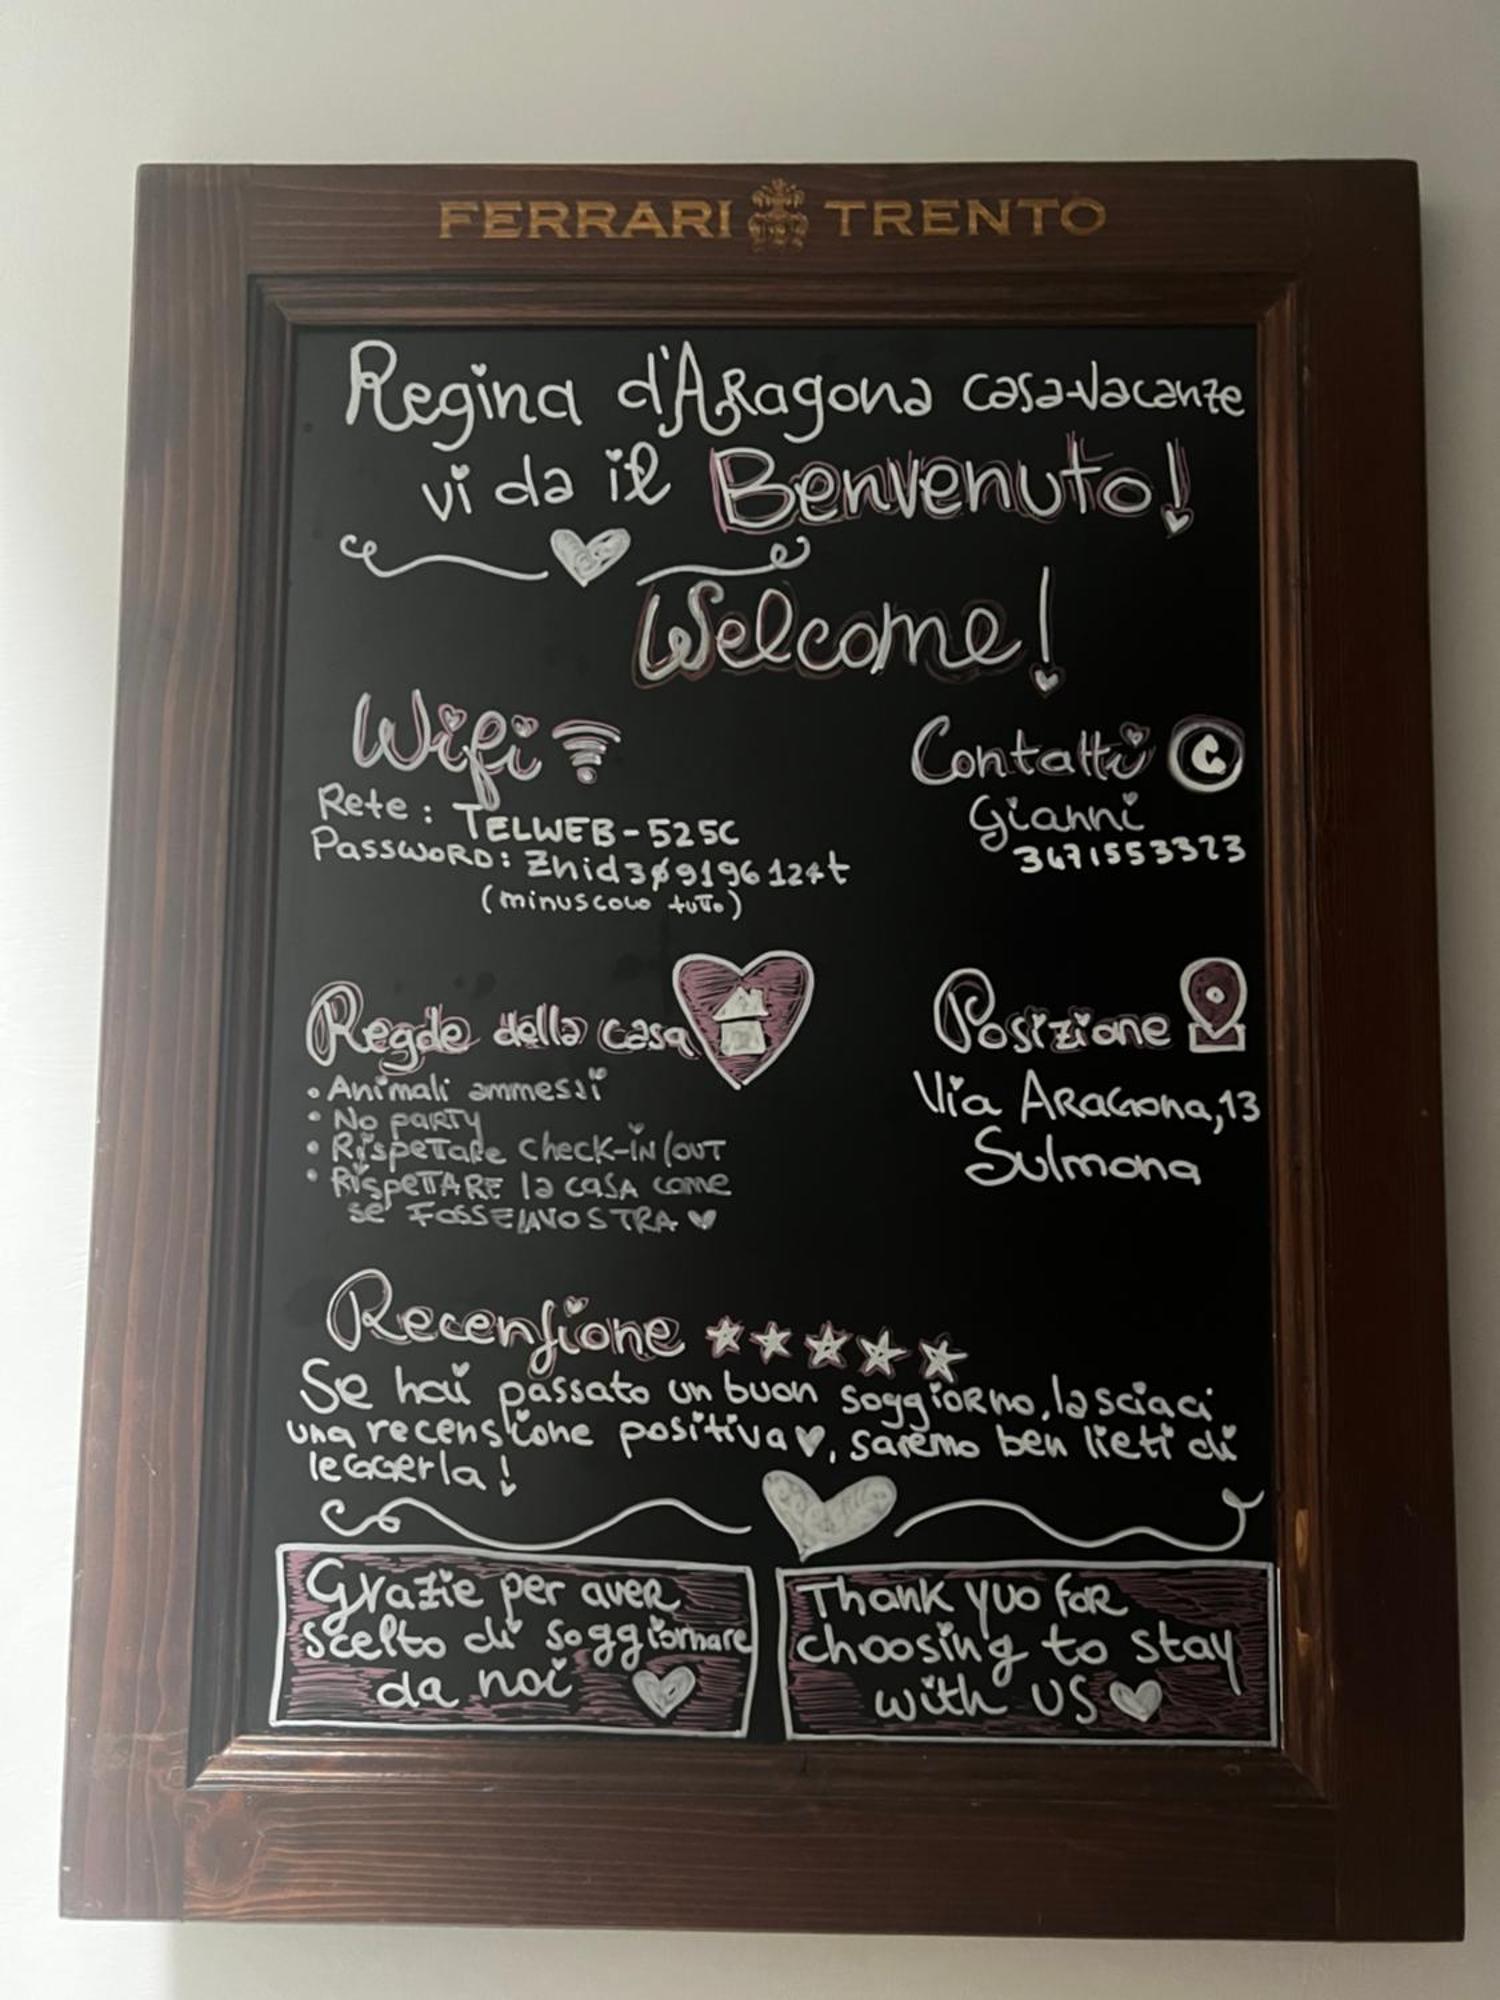 FERRARI TRENTO
Regina d'Aragona casa-vacanze
vi da il Benvenuto!
Welcome!
Wifi
Rete: TELWEB-525C
Password:
(minuscolo tutto)
Contatti
Gianni
3471553323
Regole della casa
• Animali ammessi
• No party
• Rispettare check-in/out
• Rispettare la casa come
se fosse la nostra
Posizione
Via Aragona, 13
Sulmona
Recensione
Se hai passato un buon soggiorno, lasciaci
una recensione positiva, saremo ben lieti di
leggerla!
Grazie per aver
scelto di soggiornare
da noi
Thank yuo for
choosing to stay
with us